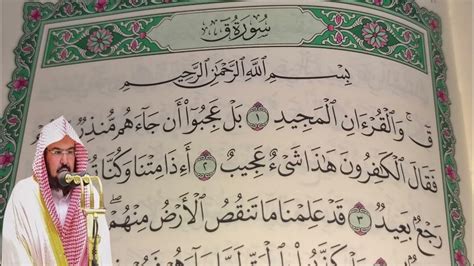 سُورَةُ قٓ
بِسْمِ ٱللَّهِ ٱلرَّحْمَٰنِ ٱلرَّحِيمِ
قٓ ۚ وَٱلْقُرْءَانِ ٱلْمَجِيدِ ١ بَلْ عَجِبُوٓا۟ أَن جَآءَهُم مُّنذِرٌ
فَقَالَ ٱلْكَٰفِرُونَ هَٰذَا شَىْءٌ عَجِيبٌ ٢ أَءِذَا مِتْنَا وَكُنَّا
رَجْعٌۢ بَعِيدٌ ٣ قَدْ عَلِمْنَا مَا تَنقُصُ ٱلْأَرْضُ مِنْهُمْ ۖ